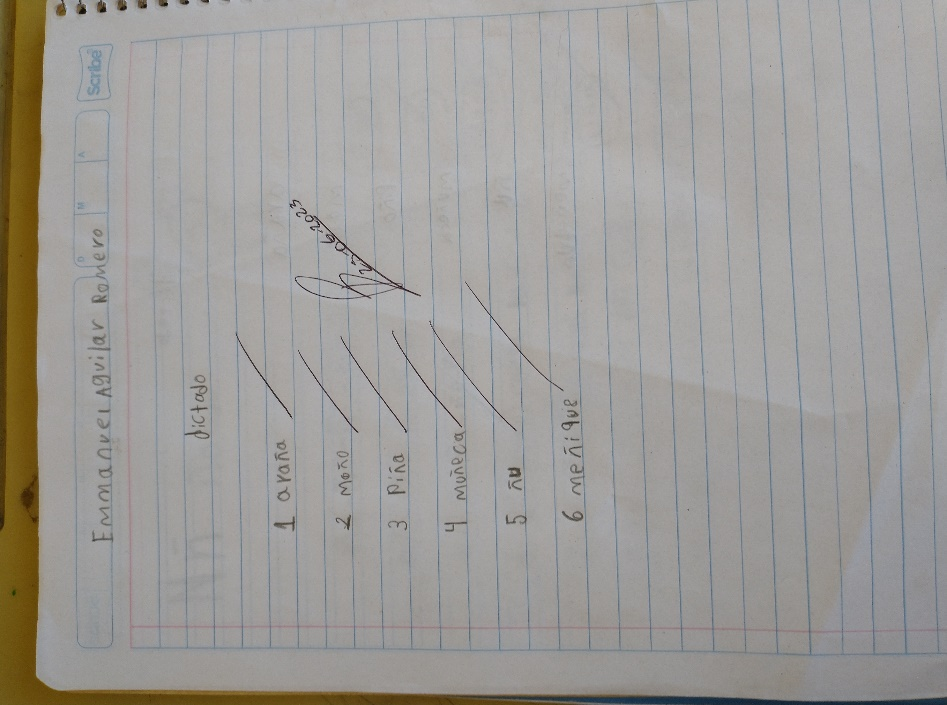 Scribe
D M A
Emmanuel Aguilar Romero
dictado
1 araña
2 moño
3 piña
4 muñeca
5 ñu
6 meñique
27-06-2023